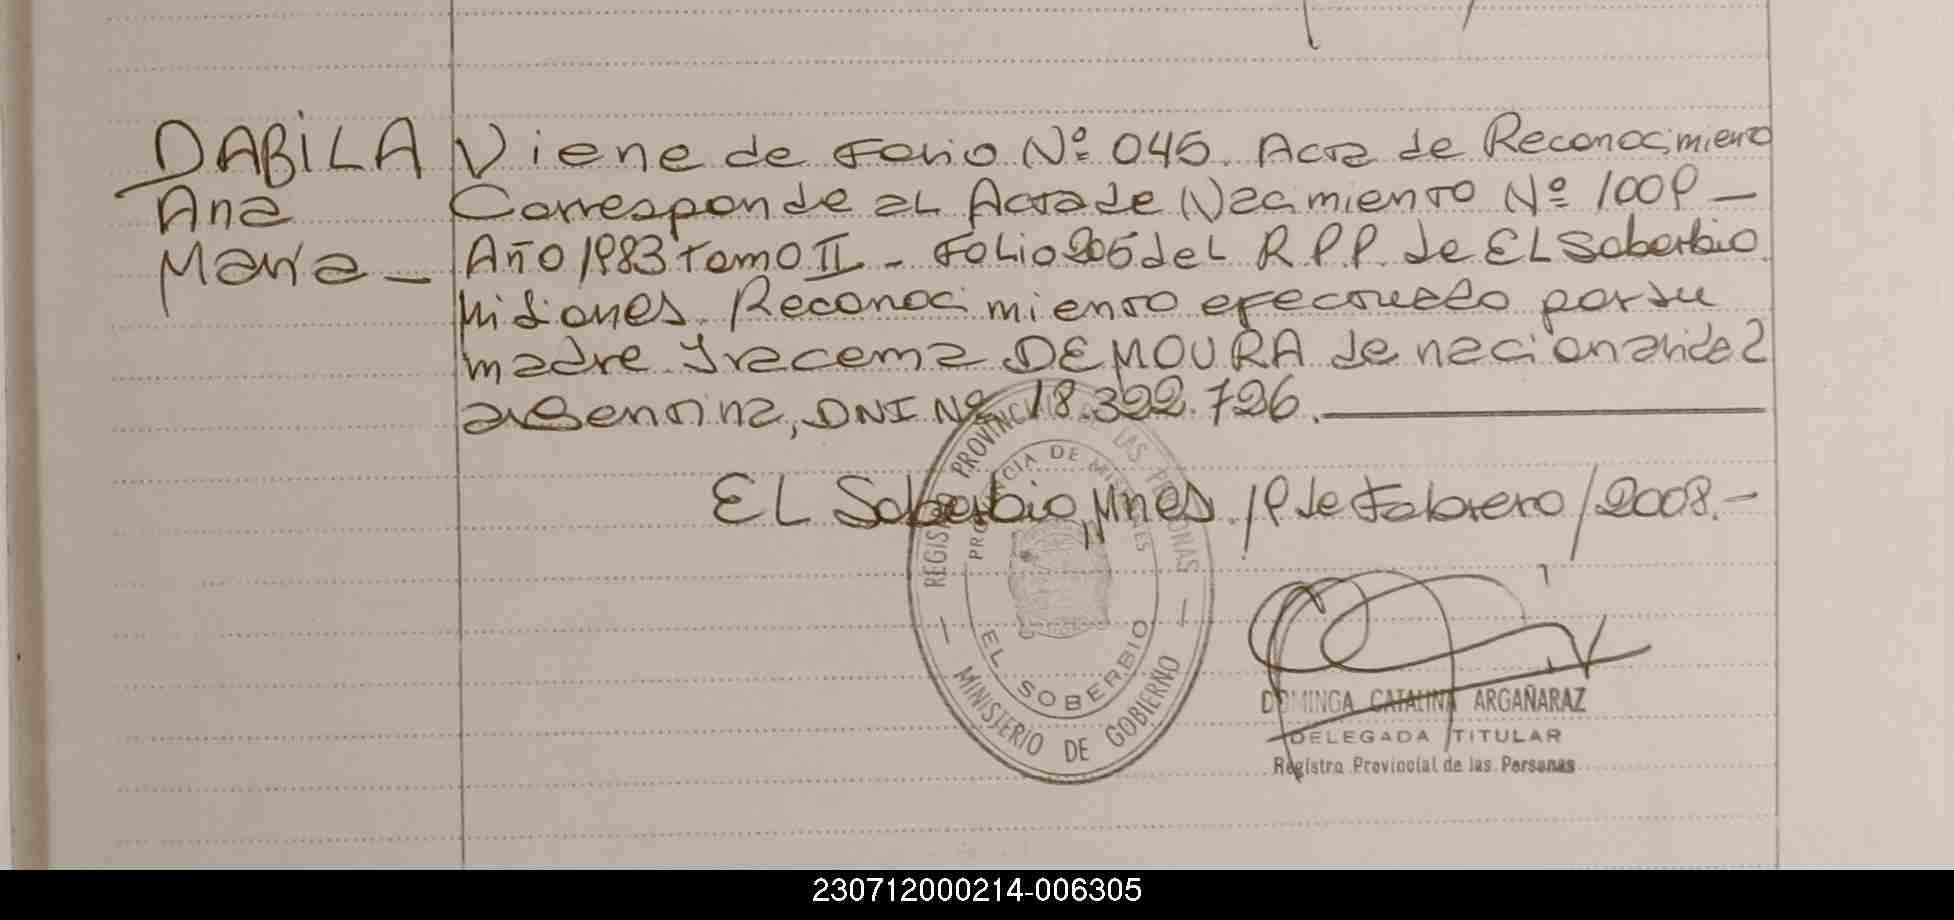 DABILA
Ana
Maria -
Viene de Folio Nº 045. Acta de Reconocimiento
Corresponde al Acta de Nacimiento Nº 1009 -
Año 1983 Tomo II - Folio 205 del R.P.P. de EL Soberbio.
Misiones. Reconocimiento efectuado por su
madre Yracema DEMOURA de nacionalidad
argentina, DNI Nº 18.322.726.
EL Soberbio, Mnes. 19 de Febrero/2008.-
REGISTRO PROVINCIAL DE LAS PERSONAS
PROVINCIA DE MISIONES
EL SOBERBIO
MINISTERIO DE GOBIERNO
DOMINGA CATALINA ARGAÑARAZ
DELEGADA TITULAR
Registro Provincial de las Personas
230712000214-006305